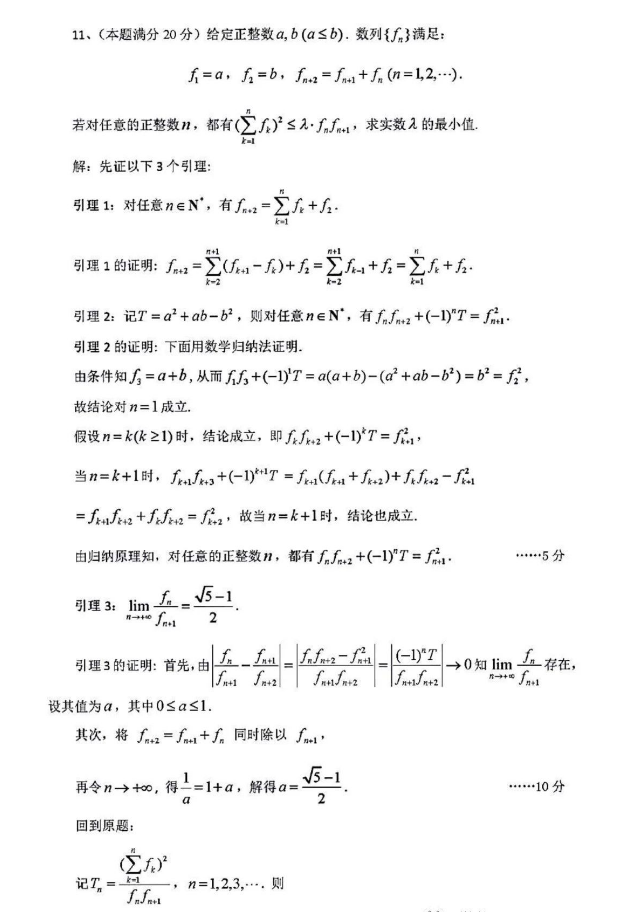 11、（本题满分 20 分）给定正整数 a, b (a ≤ b)．数列{fₙ}满足：
f₁ = a，f₂ = b，fₙ₊₂ = fₙ₊₁ + fₙ (n = 1,2,⋯)．
若对任意的正整数 n，都有(∑_{k=1}^{n} f_k)² ≤ λ·fₙfₙ₊₁，求实数 λ 的最小值．
解：先证以下 3 个引理：
引理 1：对任意 n∈N*，有 fₙ₊₂ = ∑_{k=1}^{n} f_k + f₂．
引理 1 的证明：fₙ₊₂ = ∑_{k=2}^{n+1} (f_{k+1} − f_k) + f₂ = ∑_{k=2}^{n+1} f_{k-1} + f₂ = ∑_{k=1}^{n} f_k + f₂．
引理 2：记 T = a² + ab − b²，则对任意 n∈N*，有 fₙfₙ₊₂ + (−1)ⁿT = f²ₙ₊₁．
引理 2 的证明：下面用数学归纳法证明．
由条件知 f₃ = a + b，从而 f₁f₃ + (−1)¹T = a(a + b) − (a² + ab − b²) = b² = f₂²，
故结论对 n = 1 成立．
假设 n = k(k ≥ 1) 时，结论成立，即 f_k f_{k+2} + (−1)^k T = f²_{k+1}，
当 n = k + 1 时，f_{k+1}f_{k+3} + (−1)^{k+1}T = f_{k+1}(f_{k+1} + f_{k+2}) + f_k f_{k+2} − f²_{k+1}
= f_{k+1}f_{k+2} + f_k f_{k+2} = f²_{k+2}，故当 n = k + 1 时，结论也成立．
由归纳原理知，对任意的正整数 n，都有 fₙfₙ₊₂ + (−1)ⁿT = f²ₙ₊₁． ⋯⋯5 分
引理 3：lim_{n→+∞} fₙ/fₙ₊₁ = (√5−1)/2．
引理 3 的证明：首先，由|fₙ/fₙ₊₁ − fₙ₊₁/fₙ₊₂| = |(fₙfₙ₊₂ − f²ₙ₊₁)/(fₙ₊₁fₙ₊₂)| = |(−1)ⁿT/(fₙ₊₁fₙ₊₂)| → 0 知 lim_{n→+∞} fₙ/fₙ₊₁ 存在，
设其值为 a，其中 0 ≤ a ≤ 1．
其次，将 fₙ₊₂ = fₙ₊₁ + fₙ 同时除以 fₙ₊₁，
再令 n → +∞，得 1/a = 1 + a，解得 a = (√5−1)/2． ⋯⋯10 分
回到原题：
记 Tₙ = (∑_{k=1}^{n} f_k)²/(fₙfₙ₊₁)，n = 1,2,3,⋯．则